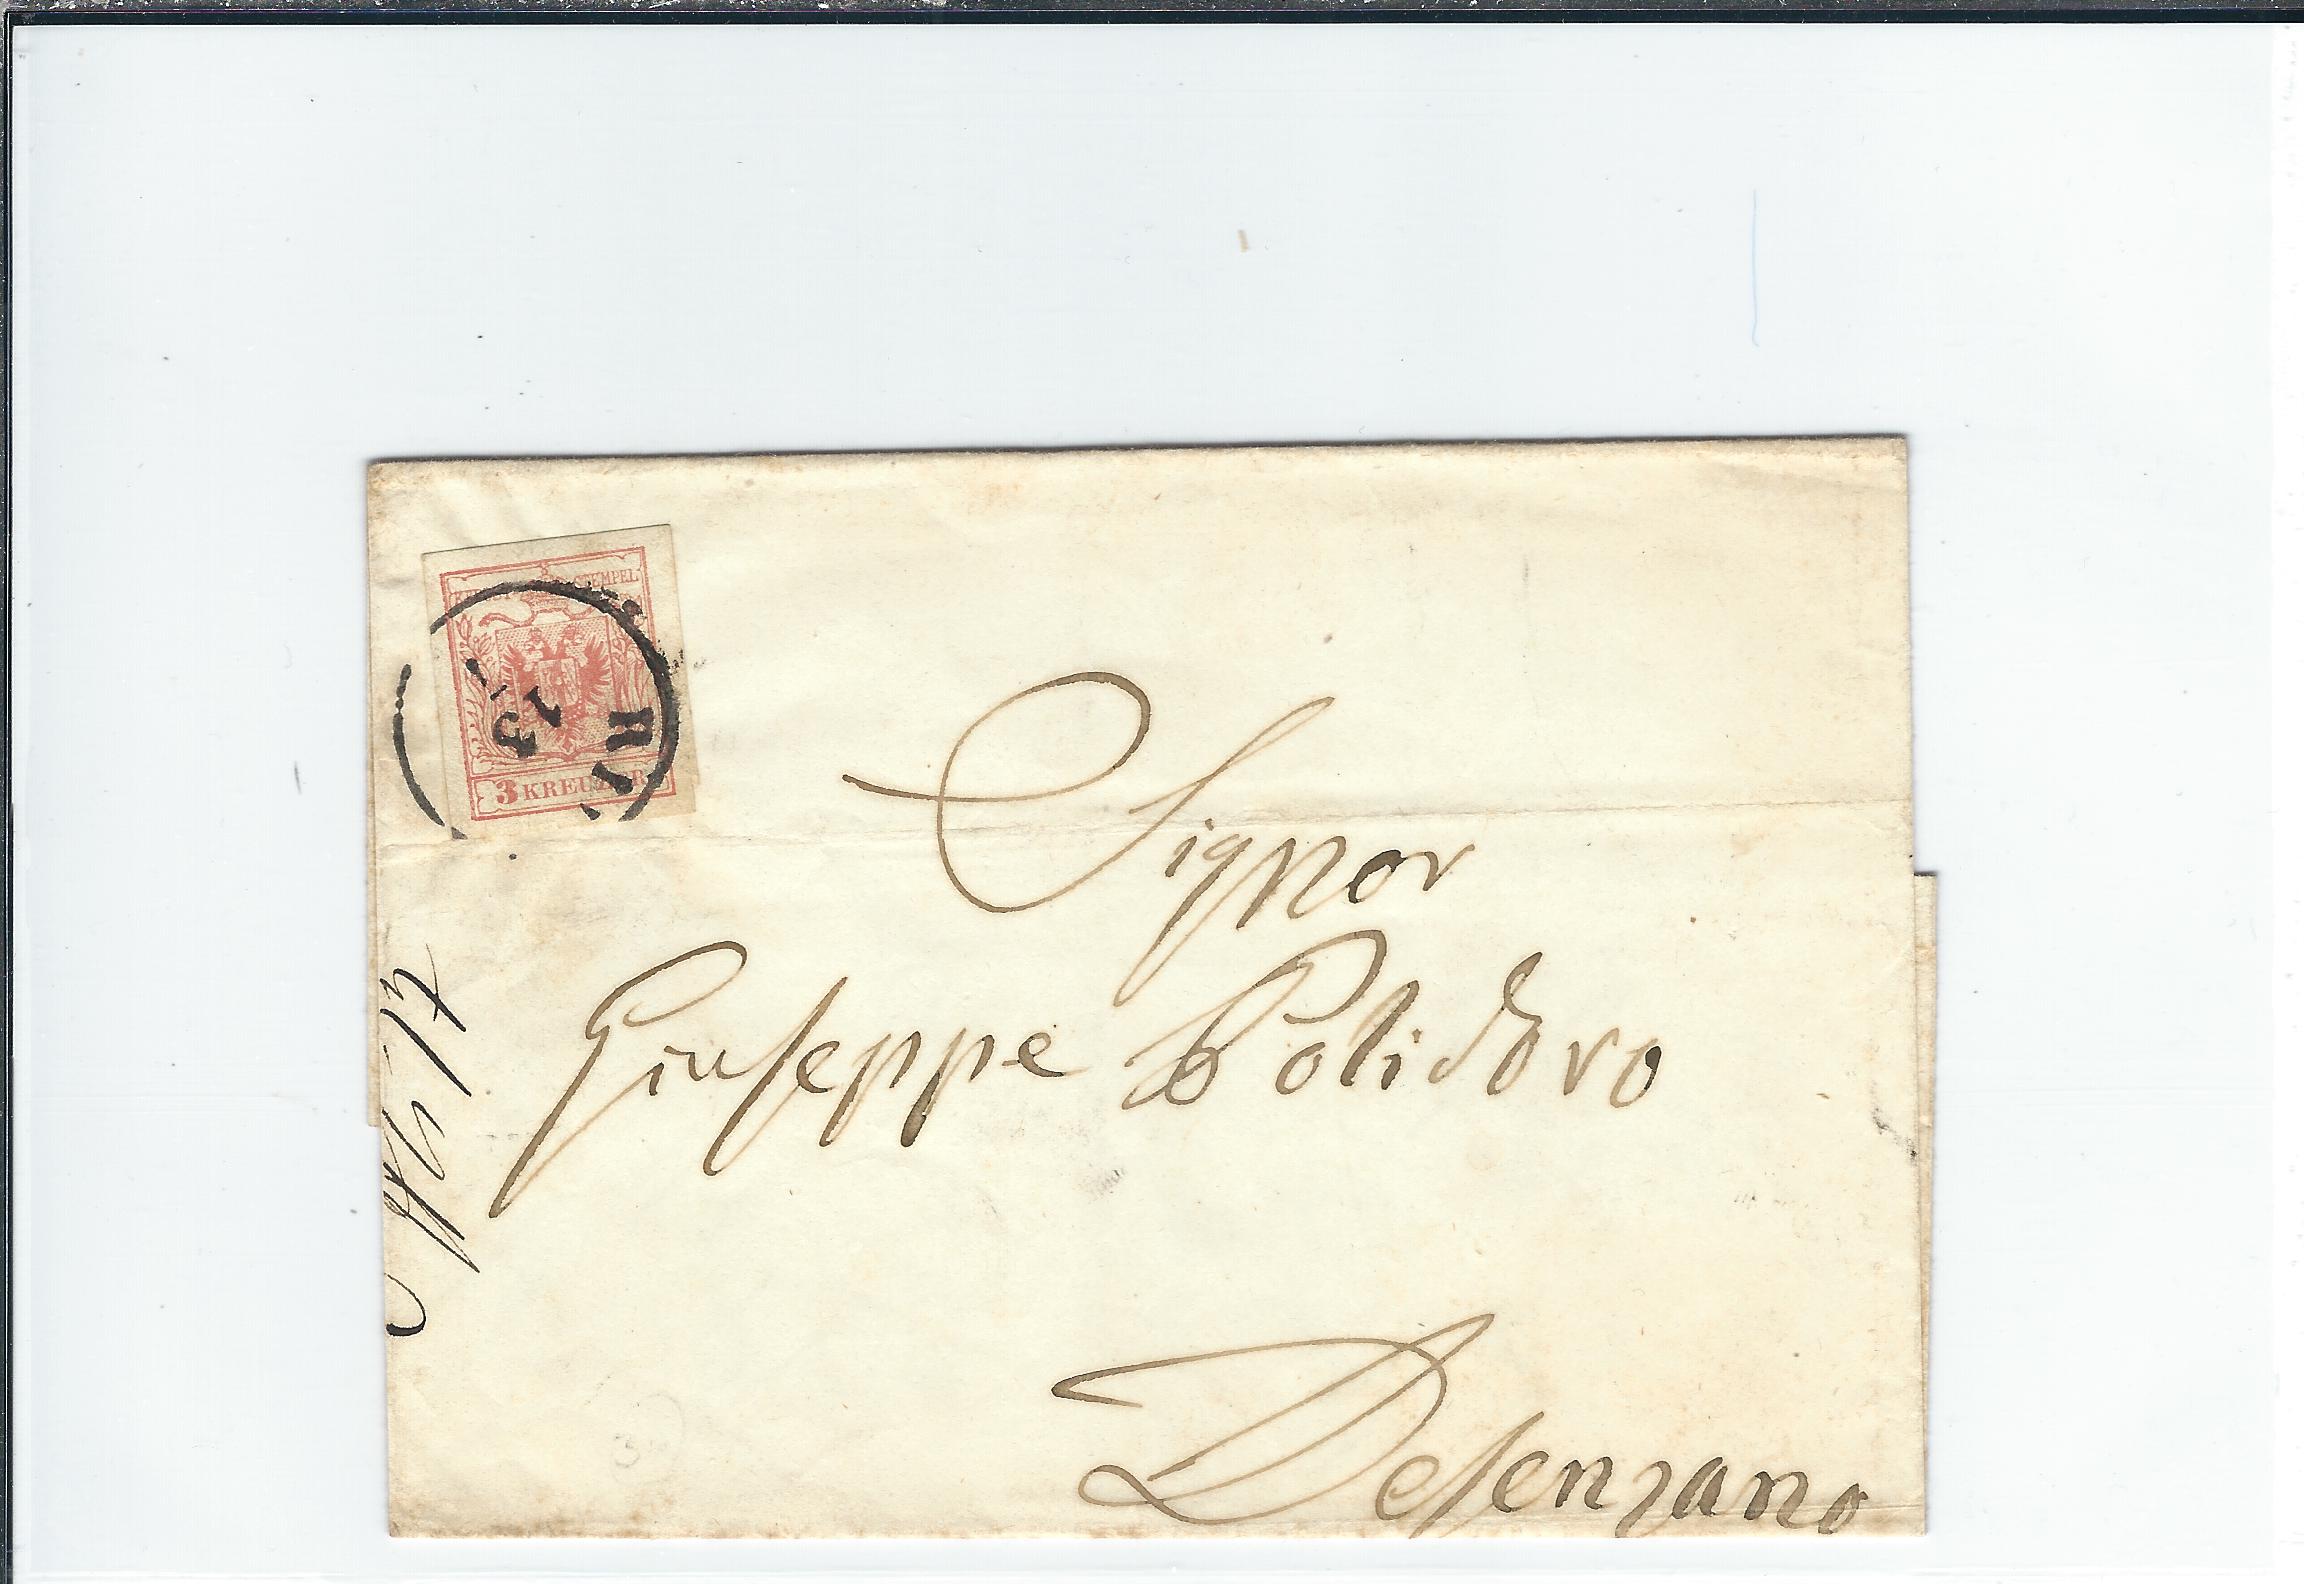 STEMPEL
3 KREUZER
13
RI
Signor
Giuseppe Polidoro
Desenzano